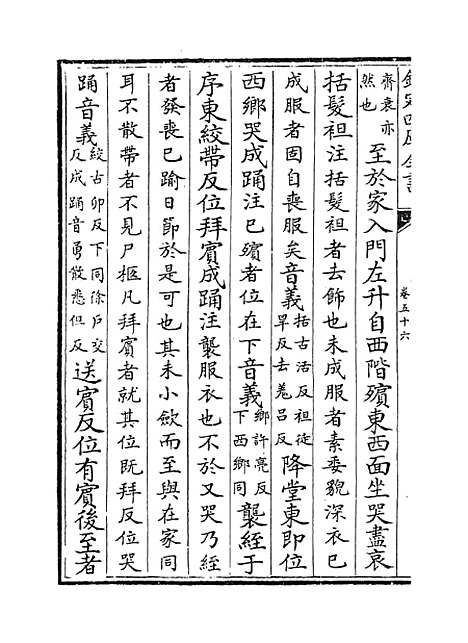 欽定四庫全書
卷五十六
齊衰亦然也至於家入門左升自西階殯東西面坐哭盡哀
括髮袒注括髮袒者去飾也未成服者素委貌深衣已
成服者固自喪服矣音義括古活反袒徒旱反去羌呂反降堂東即位
西鄉哭成踊注已殯者位在下音義鄉許亮反下西鄉同襲絰于
序東絞帶反位拜賓成踊注襲服衣也不於又哭乃絰
者發喪已踰日節於是可也其未小斂而至與在家同
耳不散帶者不見尸柩凡拜賓者就其位既拜反位哭
踊音義絞古卯反下同徐戶交反成踊音勇散悉但反送賓反位有賓後至者